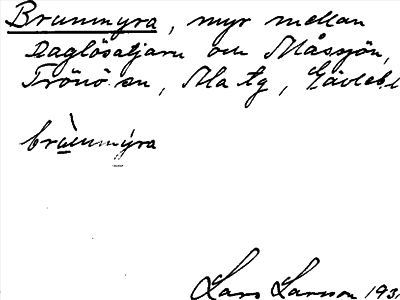 Brunnmyra, myr mellan
Daglösatjärn och Måssjön,
Trönö sn, Ma tg, Gävlebl
brùnnmýra
Lars Larsson 193